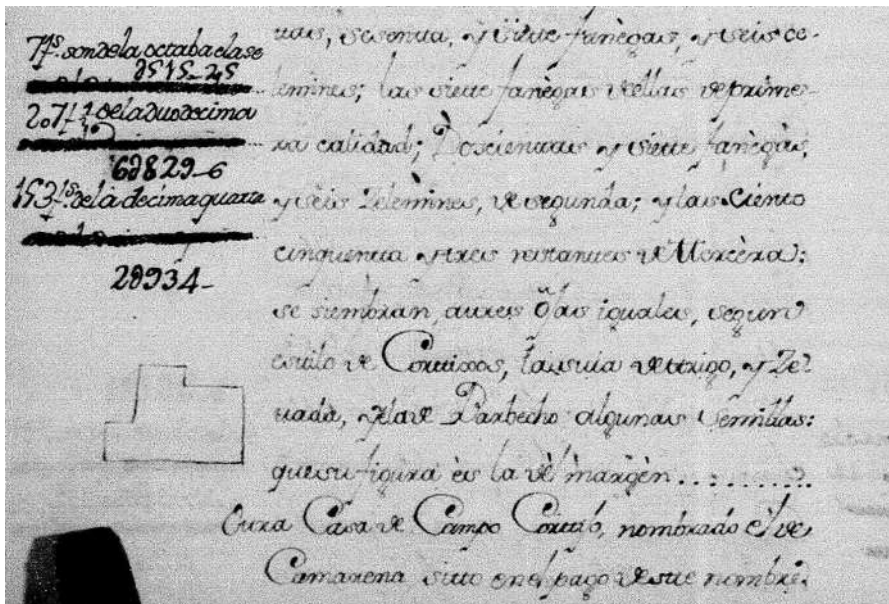 7fs. son de la octaba clase
2515-25
207 f de la duodecima
6829-6
153 fs. de la decimaquarta
2934-
tas, sesenta, y siete fanègas, y seis ce-
lemines; las siete fanègas dellas de prime-
ra calidad; Doscientas y siete fanègas,
y seis Zelemines, de segunda; y las Ciento
cinquenta y tres restantes de Terzèra:
se siembran, a tres ojas iguales, segun
estilo de Cortixos, la suia de trigo, y Ze-
uada, y la de Barbecho algunas Semillas:
que su figura ès la del margèn..........
Otra Casa de Campo Cortixo, nombrado el de
Camarena sitto en el pago de este nombre,